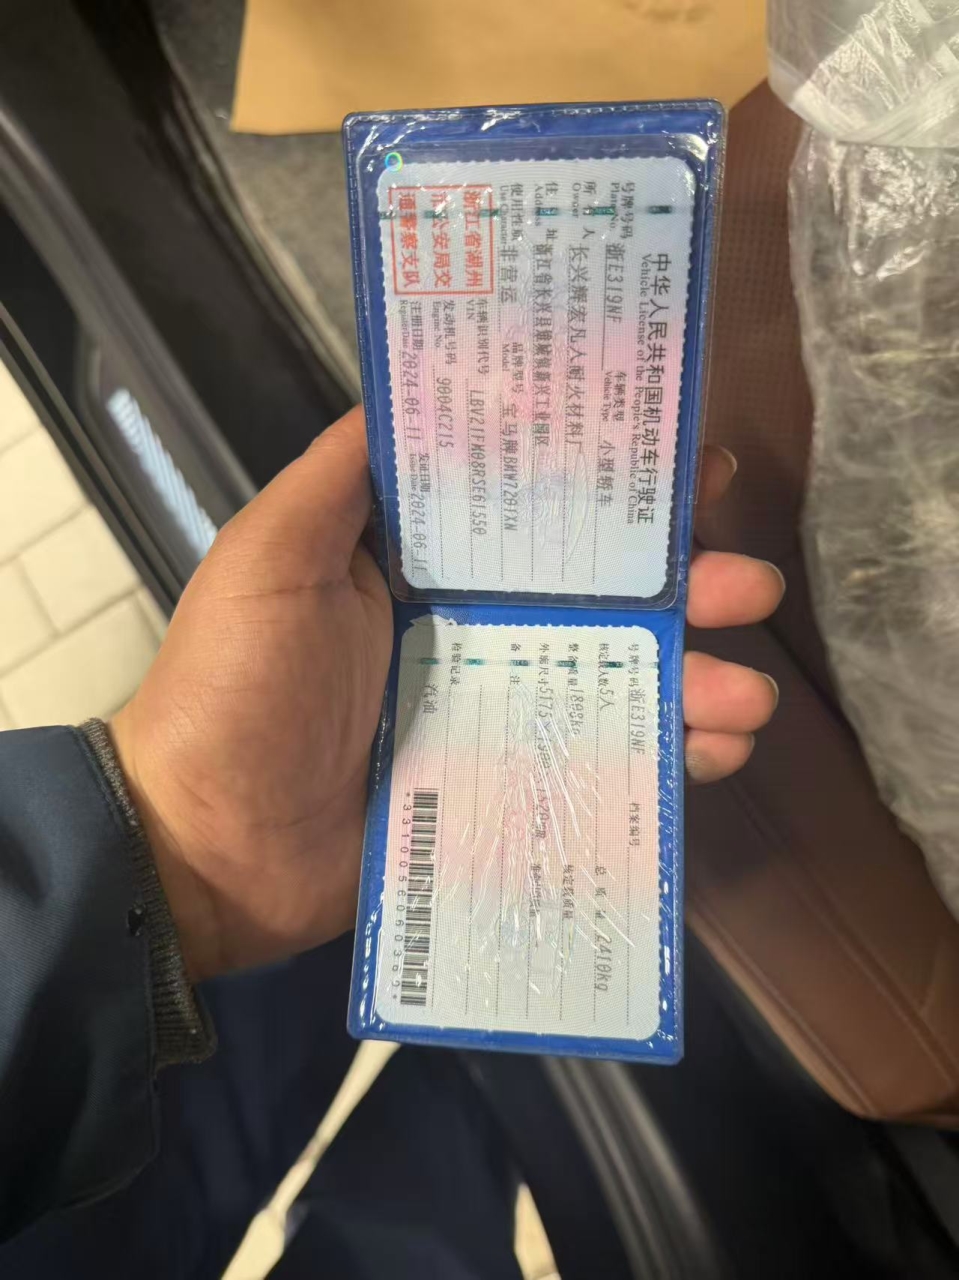 中华人民共和国机动车行驶证
Vehicle License of the People's Republic of China
号牌号码 浙E319NF 车辆类型 小型轿车
Plate No. Vehicle Type
所有人 长兴辉宏凡人耐火材料厂
Owner
住址 浙江省长兴县雉城镇新兴工业园区
Address
使用性质 非营运 品牌型号 宝马牌BMW7201XN
Use Character Model
浙江省湖州
市公安局交
通警察支队
车辆识别代号 LBV21FM08RSE61550
VIN
发动机号码 9004C215
Engine No.
注册日期 2024-06-11 发证日期 2024-06-11
Register Date Issue Date
号牌号码 浙E319NF 档案编号
核定载人数 5人 总质量 2410kg
整备质量 1808kg 核定载质量
外廓尺寸 5175
备注
检验记录
汽油
*3310056060389*